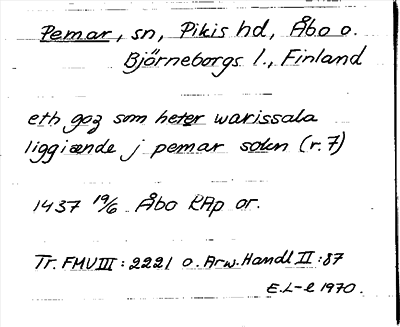 Pemar, sn, Pikis hd, Åbo o.
Björneborgs l., Finland
eth goz som heter warissala
liggiænde j pemar sokn (r. 7)
1437 19/6 Åbo RAp or.
Tr. FMU III: 2221 o. Arw. Handl II: 87
E.L-e 1970.